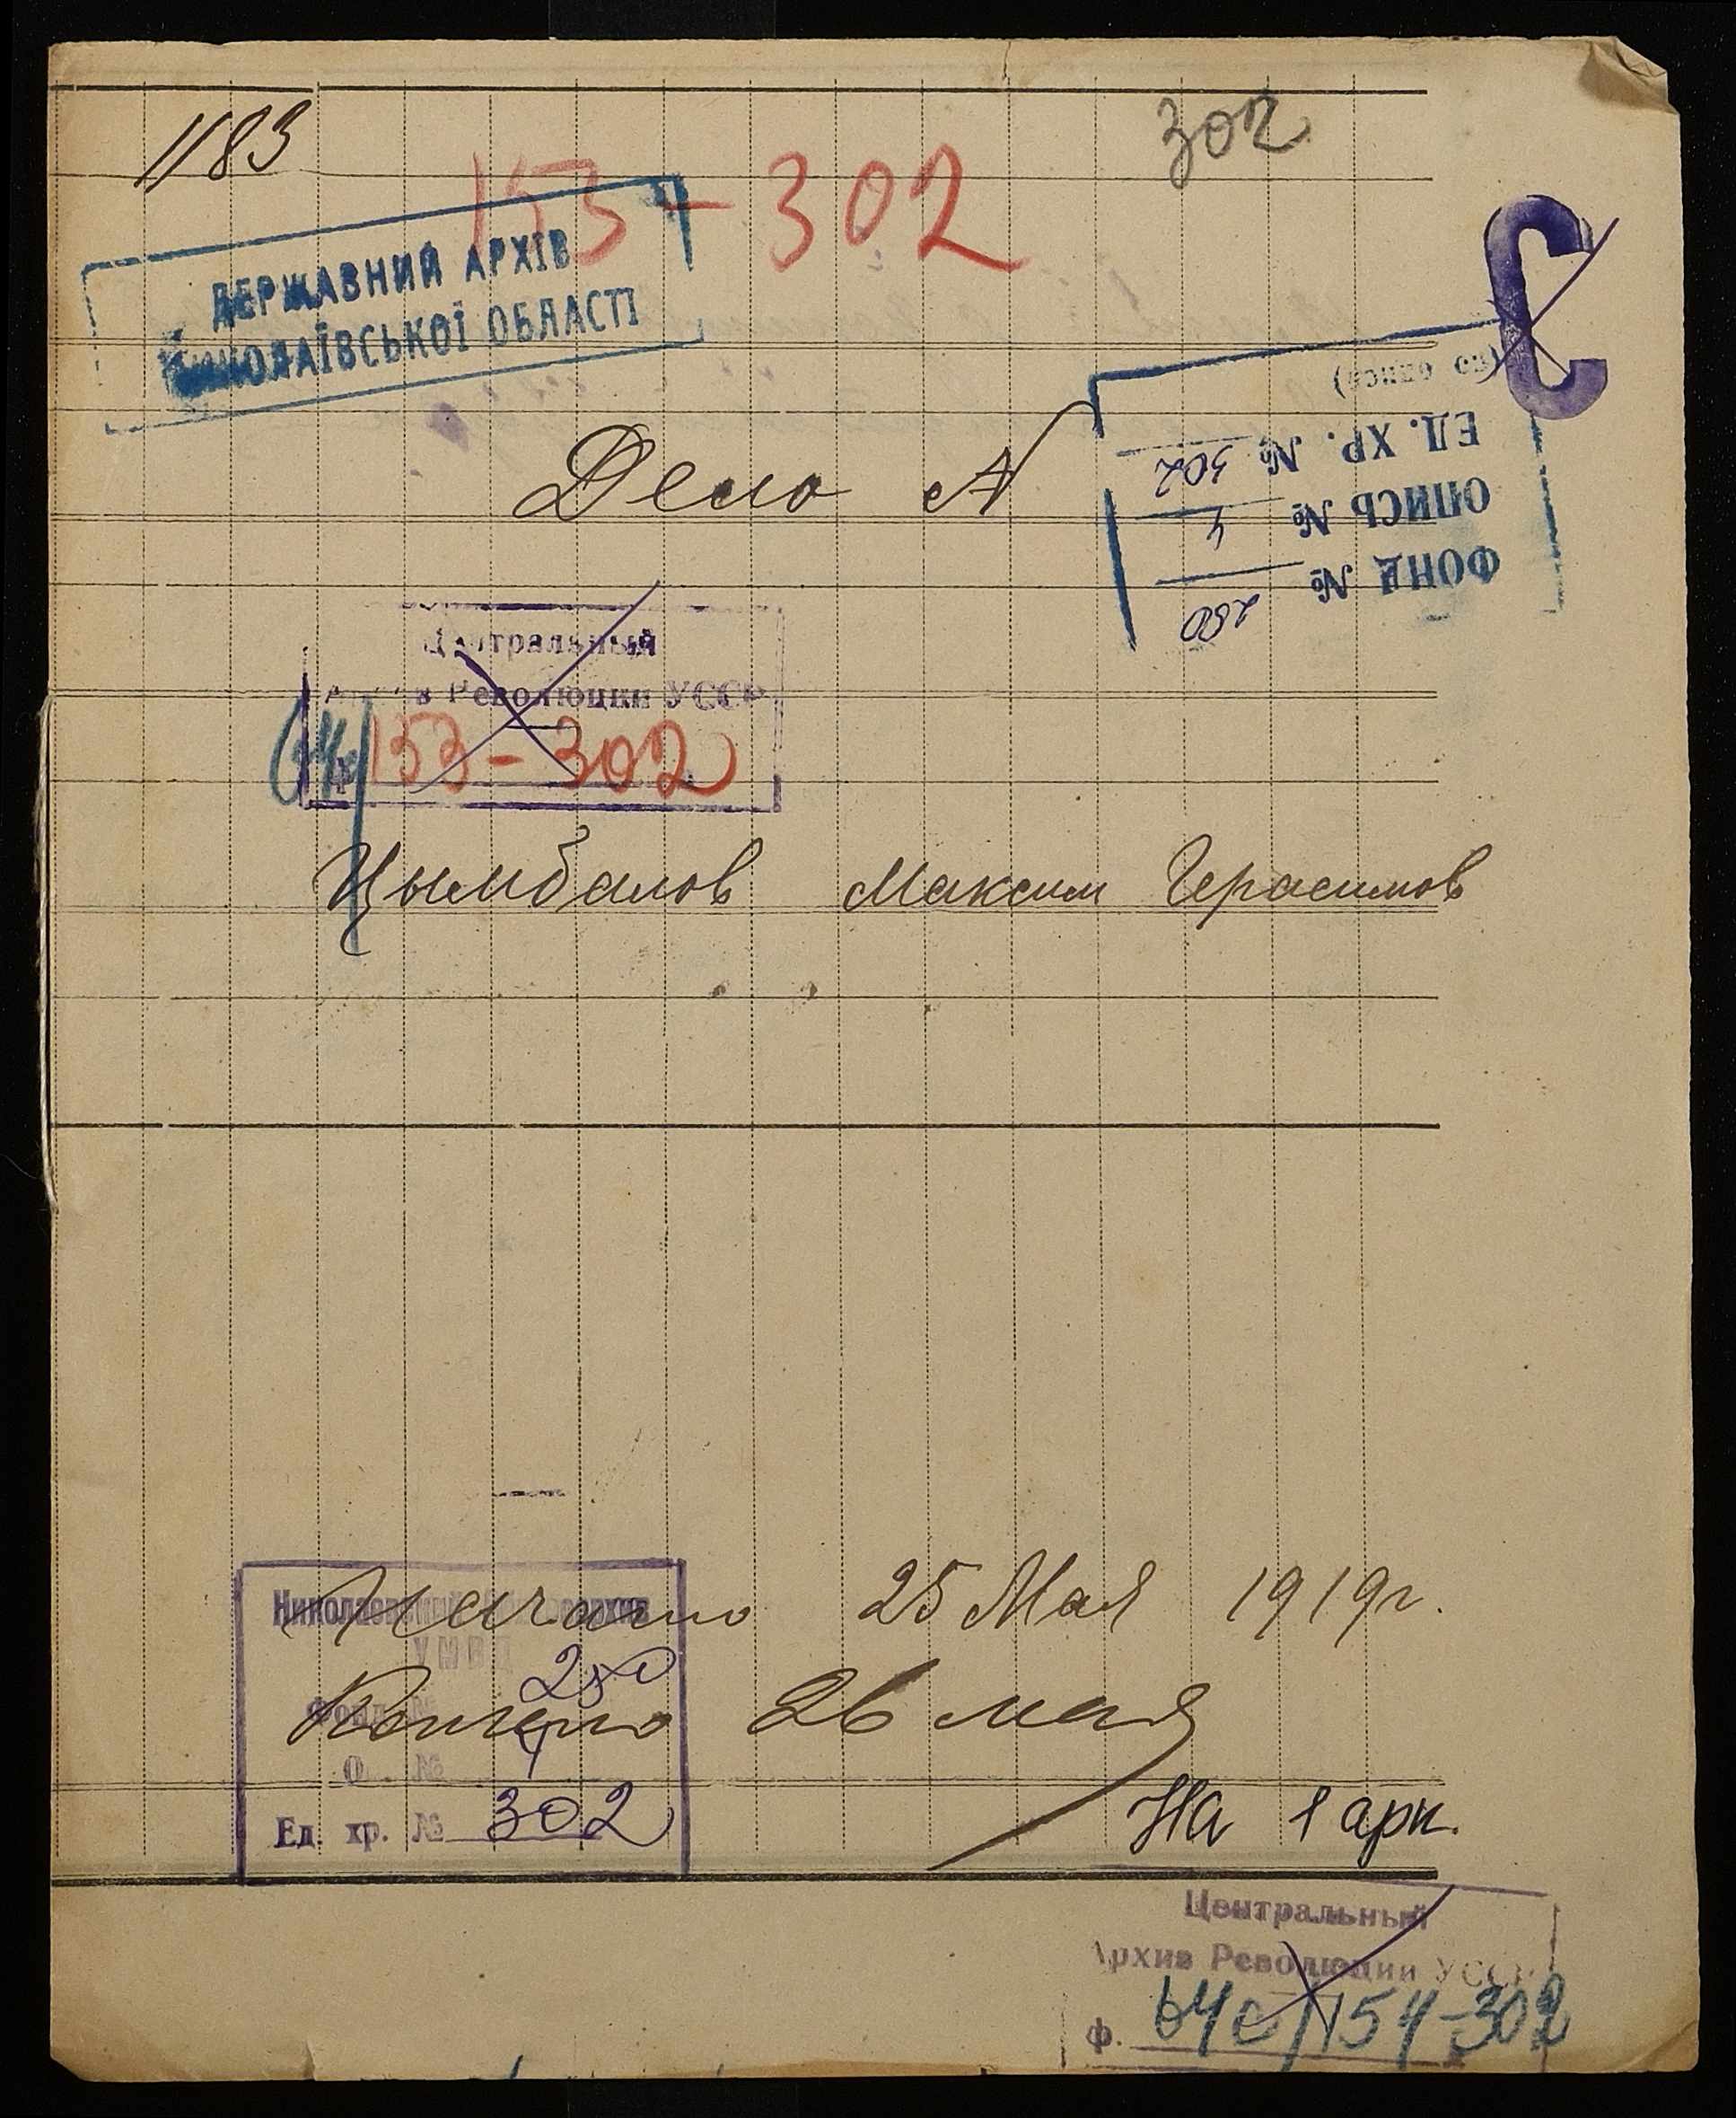 1183
302
153-302
ДЕРЖАВНИЙ АРХІВ
МИКОЛАЇВСЬКОЇ ОБЛАСТІ
С
(по описи)
ЕД. ХР. № 302
ОПИСЬ № 4
ФОНД № 250
Дело №
Центральный
Архив Революции УССР
153-302
Цымбалов Максим Герасимов
Начато 25 Мая 1919г.
Кончено 26 мая
УМВД
Фонд № 250
О № 4
Ед. хр. № 302
На 1 арк.
Центральный
Архив Революции УССР
ф. 64с/154-302